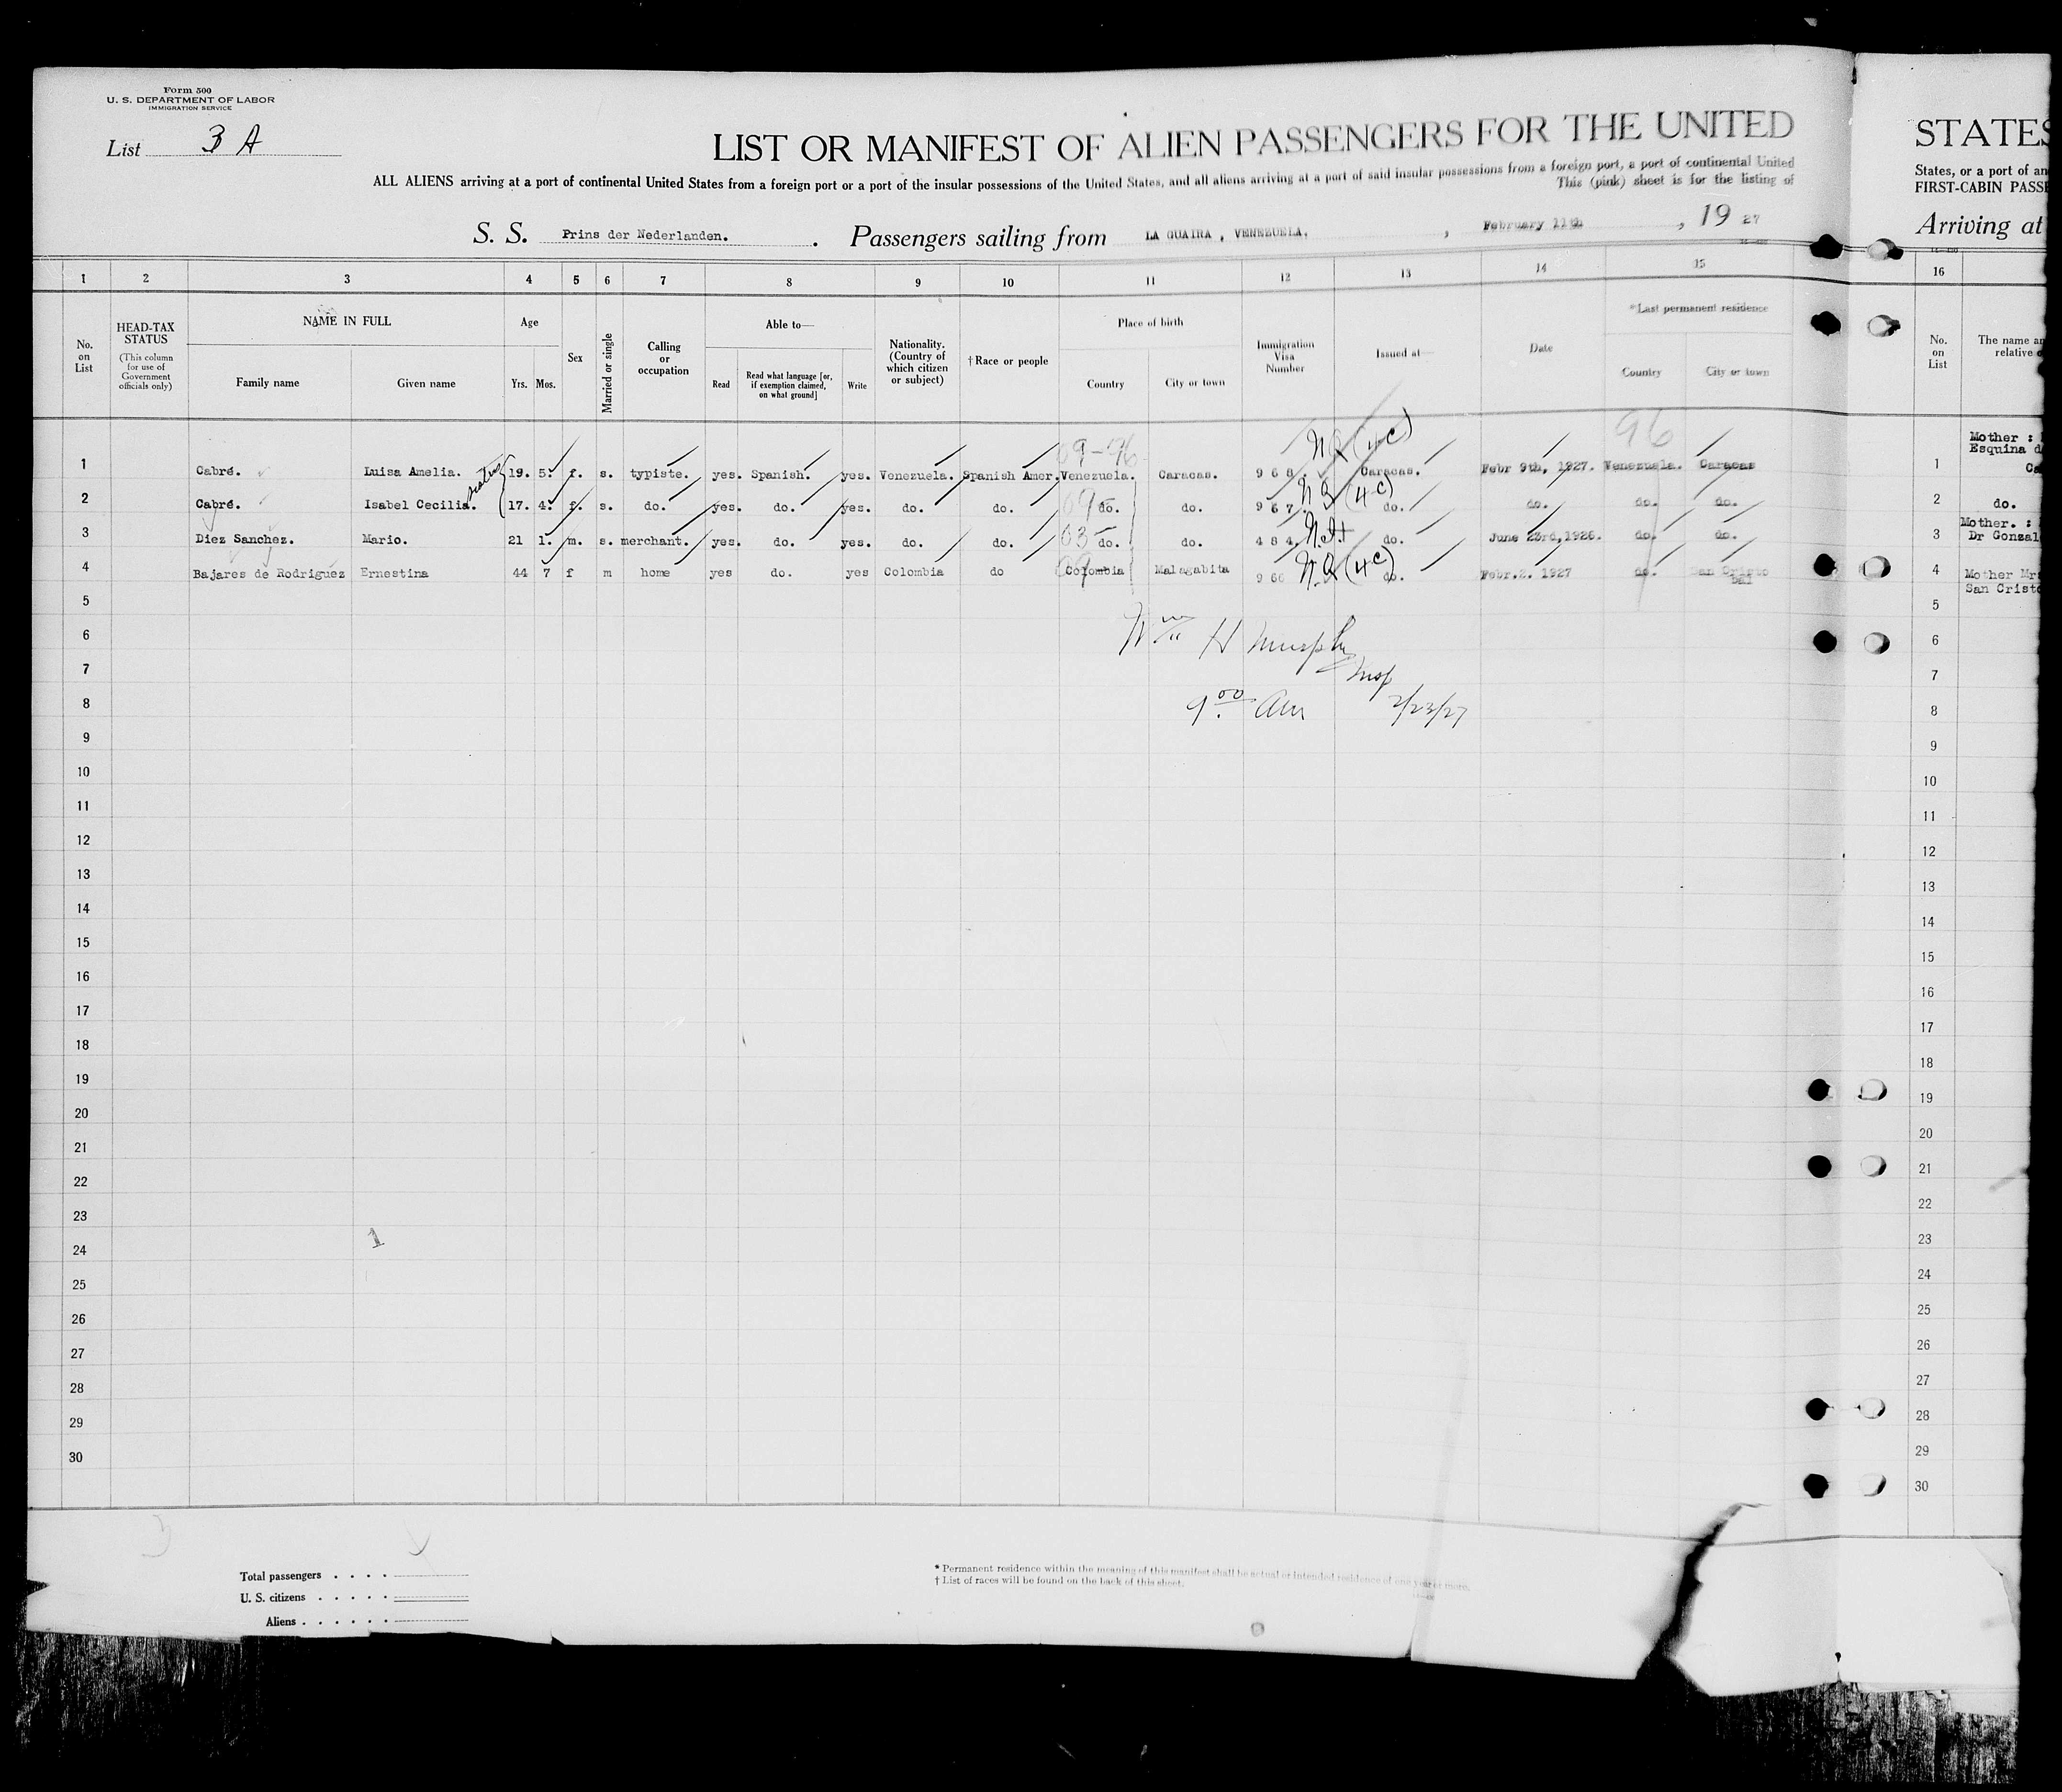 Form 500
U. S. DEPARTMENT OF LABOR
IMMIGRATION SERVICE
List 3 A
LIST OR MANIFEST OF ALIEN PASSENGERS FOR THE UNITED
STATES
ALL ALIENS arriving at a port of continental United States from a foreign port or a port of the insular possessions of the United States, and all aliens arriving at a port of said insular possessions from a foreign port, a port of continental United
States, or a port of an
This (pink) sheet is for the listing of
FIRST-CABIN PASSE
S. S. Prins der Nederlanden. . Passengers sailing from LA GUAIRA , VENEZUELA, , February 11th , 19 27
Arriving at
1 2 3 4 5 6 7 8 9 10 11 12 13 14 15 16
No. on List
HEAD-TAX STATUS
(This column for use of Government officials only)
NAME IN FULL
Family name Given name
Age
Yrs. Mos.
Sex
Married or single
Calling or occupation
Able to—
Read
Read what language [or, if exemption claimed, on what ground]
Write
Nationality. (Country of which citizen or subject)
†Race or people
Place of birth
Country City or town
Immigration Visa Number
Issued at—
Date
*Last permanent residence
Country City or town
No. on List
The name an
relative o
09-96
N.Q (4C)
96
1 Cabré. Luisa Amelia. 19. 5. f. s. typiste. yes. Spanish. yes. Venezuela. Spanish Amer. Venezuela. Caracas. 9 6 8 Caracas. Febr 9th, 1927. Venezuela. Caracas
1 Mother :
Esquina d
Ca
2 Cabré. Isabel Cecilia. 17. 4. f. s. do. yes. do. yes. do. do. 09 do. do. 9 6 7 N Q (4C) do. do. do. do.
2 do.
3 Diez Sanchez. Mario. 21 1. m. s. merchant. yes. do. yes. do. do. 03 do. do. 4 8 4. do. June 23rd,1926. do. do.
3 Mother. :
Dr Gonzal
4 Bajares de Rodriguez Ernestina 44 7 f m home yes do. yes Colombia do 09 Colombia Malagabita 9 66 N.Q (4C) do. Febr.2. 1927 do. San Cristo
bal
4 Mother Mr
San Crist
5 5
Wm H Murphy
6 6
Insp
7 7
9 00 Am 2/23/27
8 8
9 9
10 10
11 11
12 12
13 13
14 14
15 15
16 16
17 17
18 18
19 19
20 20
21 21
22 22
23 23
1
24 24
25 25
26 26
27 27
28 28
29 29
30 30
Total passengers . . . .
U. S. citizens . . . . .
Aliens . . . . . .
* Permanent residence within the meaning of this manifest shall be actual or intended residence of one year or more.
† List of races will be found on the back of this sheet.